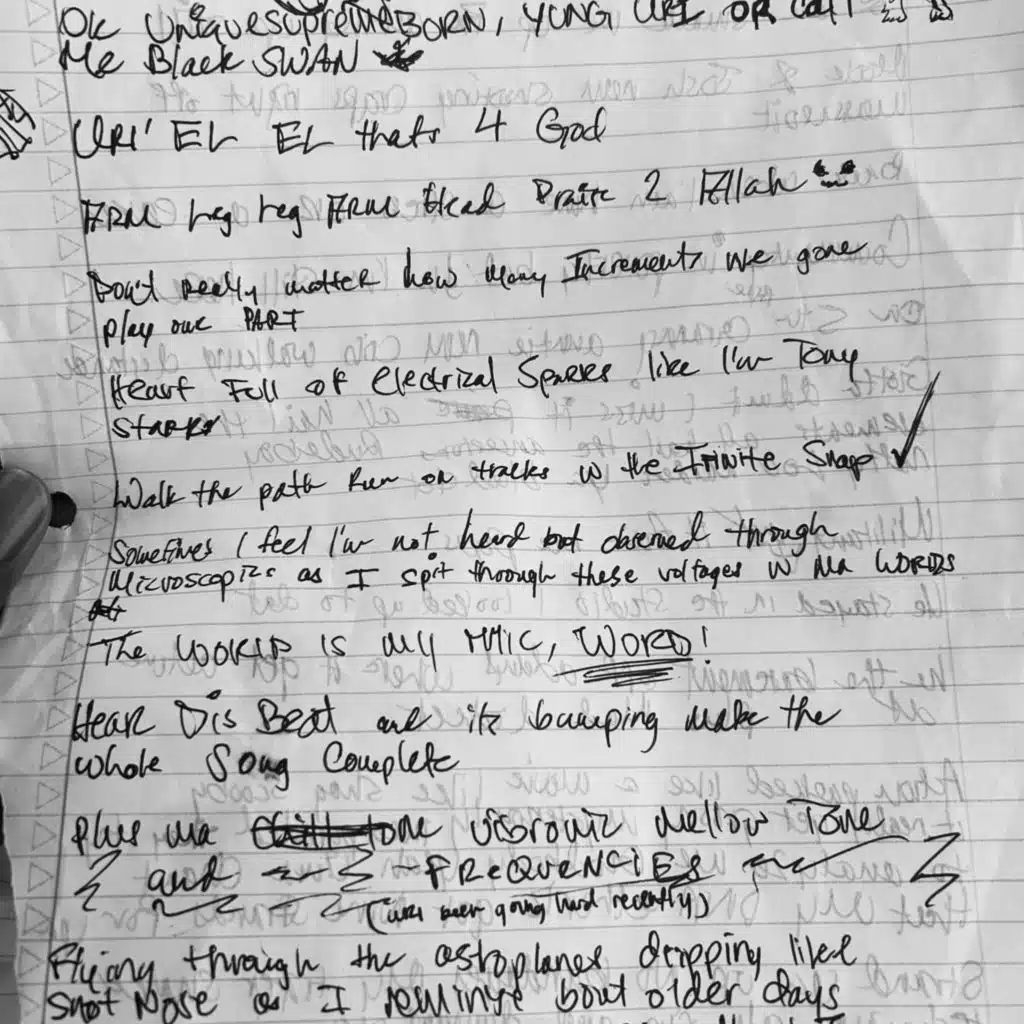 Ok UniquesupremeBORN, YUNG URI OR Call
Me Black SWAN
URI' EL EL thats 4 God
ARM Leg Leg ARM Head Praise 2 Allah
Don't really matter how many Increments we gone
play our PART
Heart Full of electrical Sparks like I'm Tony
Starks
Walk the path Run on tracks w the Infinite Snapp
Sometimes I feel I'm not heard but observed through
Microscopics as I spit through these voltages w Ma WORDS
The WORLD is my MIC, WORD!
Hear Dis Beat and its bumping make the
whole Song Complete
plus ma tone vibronic mellow Tone
and FREQUENCIES
(URI been going hard recently)
Flying through the astroplanes dripping like
snot Nose as I reminise bout older days